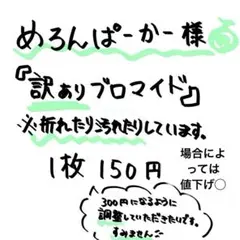 めろんぱーかー様
『訳ありブロマイド』
※折れたり汚れたりしています。
1枚 150円
場合によ
っては
値下げ○
300円になるように
調整していただきたいです。
すみません